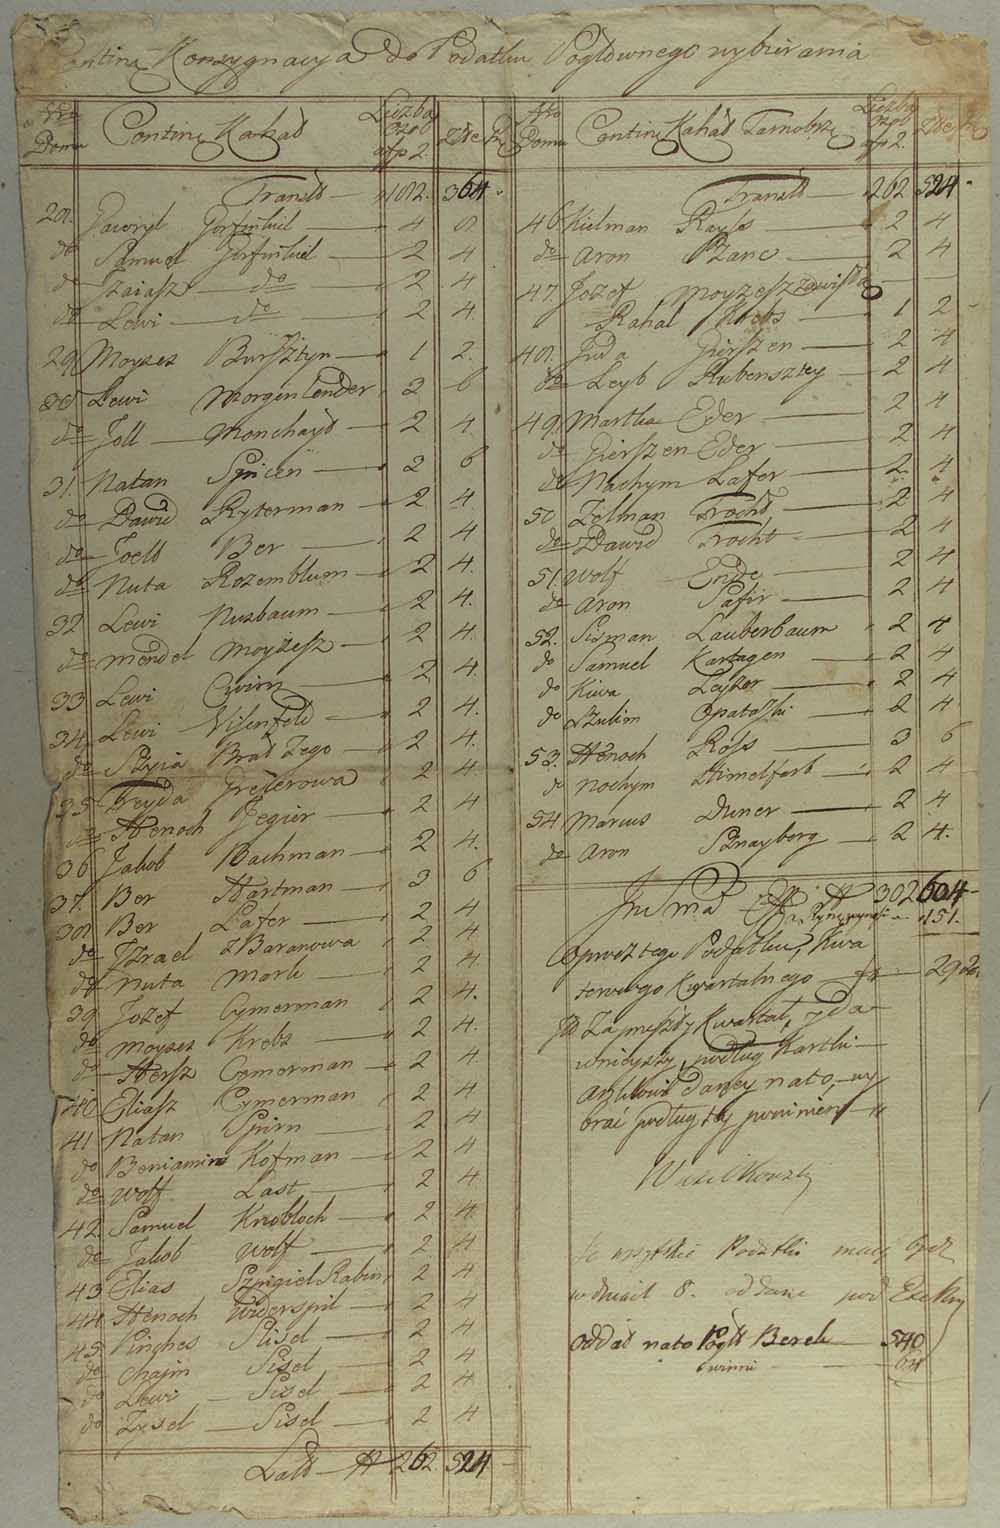 Kon­sygnacya do Podatku Pogłownego wybirania
Nro Domu Contin. Kahał Liczba Ozob a fp 2. Złte
Transld 182. 364
28. 4 8
do Samuel 2 4
do Izaiasz do 2 4
do Lewi do 2 4
29 Moyzes Bursztyn 1 2.
30 Lewi Morgenlender 3 6
do Joll Monchayd 2 4
31. Natan Spicen 3 6
do Dawid Ryterman 2 4.
do Joeld Ber 2 4
do Nuta Rozemblum 2 4.
32 Lewi Nusbaum 2 4.
do Mendel Moyżesz 2 4.
33 Lewi 2 4.
34. Lewi Visenfeld 2 4.
do Szyia Brat Jego 2 4.
35. Freyda 2 4.
do Henoch Jegier 2 4
36 Jakob Bachman 2 4.
37. Ber Hartman 3 6
38 Ber Lafer 2 4
do Izrael z Baranowa 2 4
do Nuta Mark 2 4.
39 Jozef Cymerman 2 4.
do Moyzes Krebs 2 4.
do Hersz Cymerman 2 4.
40. Eliasz Cymerman 2 4
41 Natan Spirn 2 4
do Beniamin Kofman 2 4
do Wolf Last 2 4
42. Samuel Knobloch 2 4
do Jakob Wolf 2 4
43 Elias Szpigiel Rabin 2 4
44 Henoch Widerspil 2 4
45. Pinches Sisel 2 4
do Chaim Sisel 2 4
do Lewi Sisel 2 4
do Zysel Sisel 2 4
Latt 262. 524
Nro Domu Contin. Kahał Tarnobrze Liczba Ozob a fp 2. Złte
Transld 262 524
46 Kielman Rayss 2 4
do Aron Szanc 2 4
47. Jozef Moyzesz
Rahal Krebs 1 2
48. Juda Gierszen 2 4
do Leyb Rubensztey 2 4
49. Martka Eder 2 4
do Gierszen Eder 2 4
do Nachym Lafer 2. 4
50 Zelman Trocht 2 4
do Dawid Trocht 2 4
51. Wolf Ende 2 4
do Aron Safir 2 4
52. Sisman Lauberbaum 2 4
do Samuel Kartagen 2 4
do Kiwa Leyzer 2 4
do Szulim Opatoski 2 4
53. Henoch Ross 3 6
do Nochym Himelfarb 2 4
54 Marcus Duner 2 4
do Aron Sznayberg 2 4.
Suma 302 604
151.
Oprosz tego Podatku, Kwa
terowego Kwartalnego 29
Za mężdy Kwartał, y da
wnieyszy, podług Kartki
Daney nato, wy
brać podług tey powinien
Wasilkowsky
Te wszytkie Podatki mają być
w dniach 8. oddane pod Exekuc
Oddał nato Pogłt Berek 540
winni 64